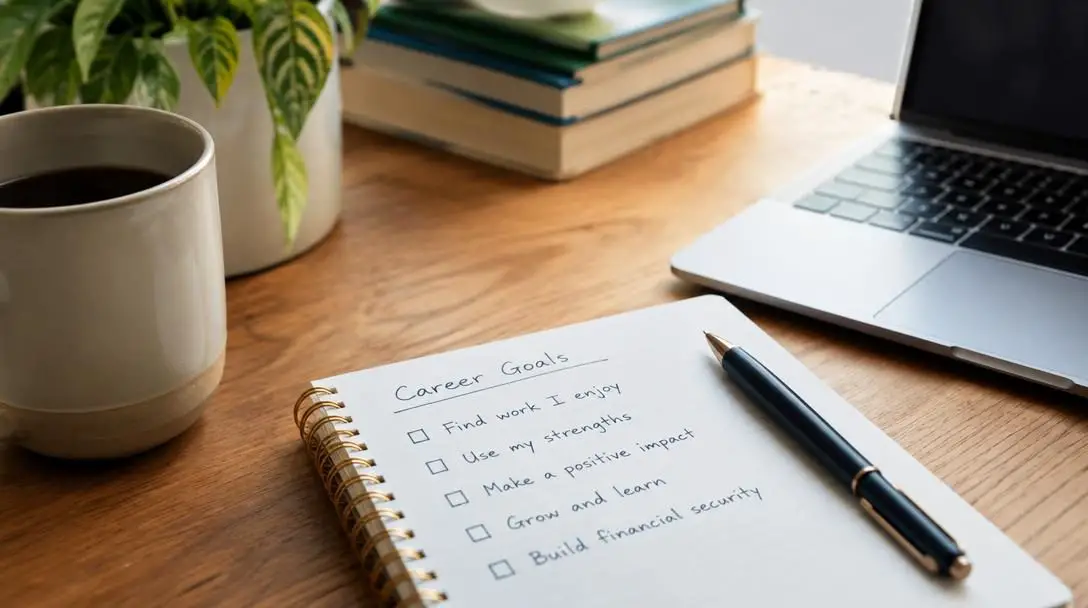 Career Goals
Find work I enjoy
Use my strengths
Make a positive impact
Grow and learn
Build financial security